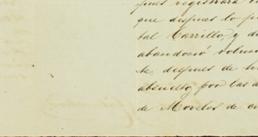 pues registrara
que despues lo p
tal Carrillo, y d
abandonó volun
te despues de h
absuelto por las a
de Morelos de c